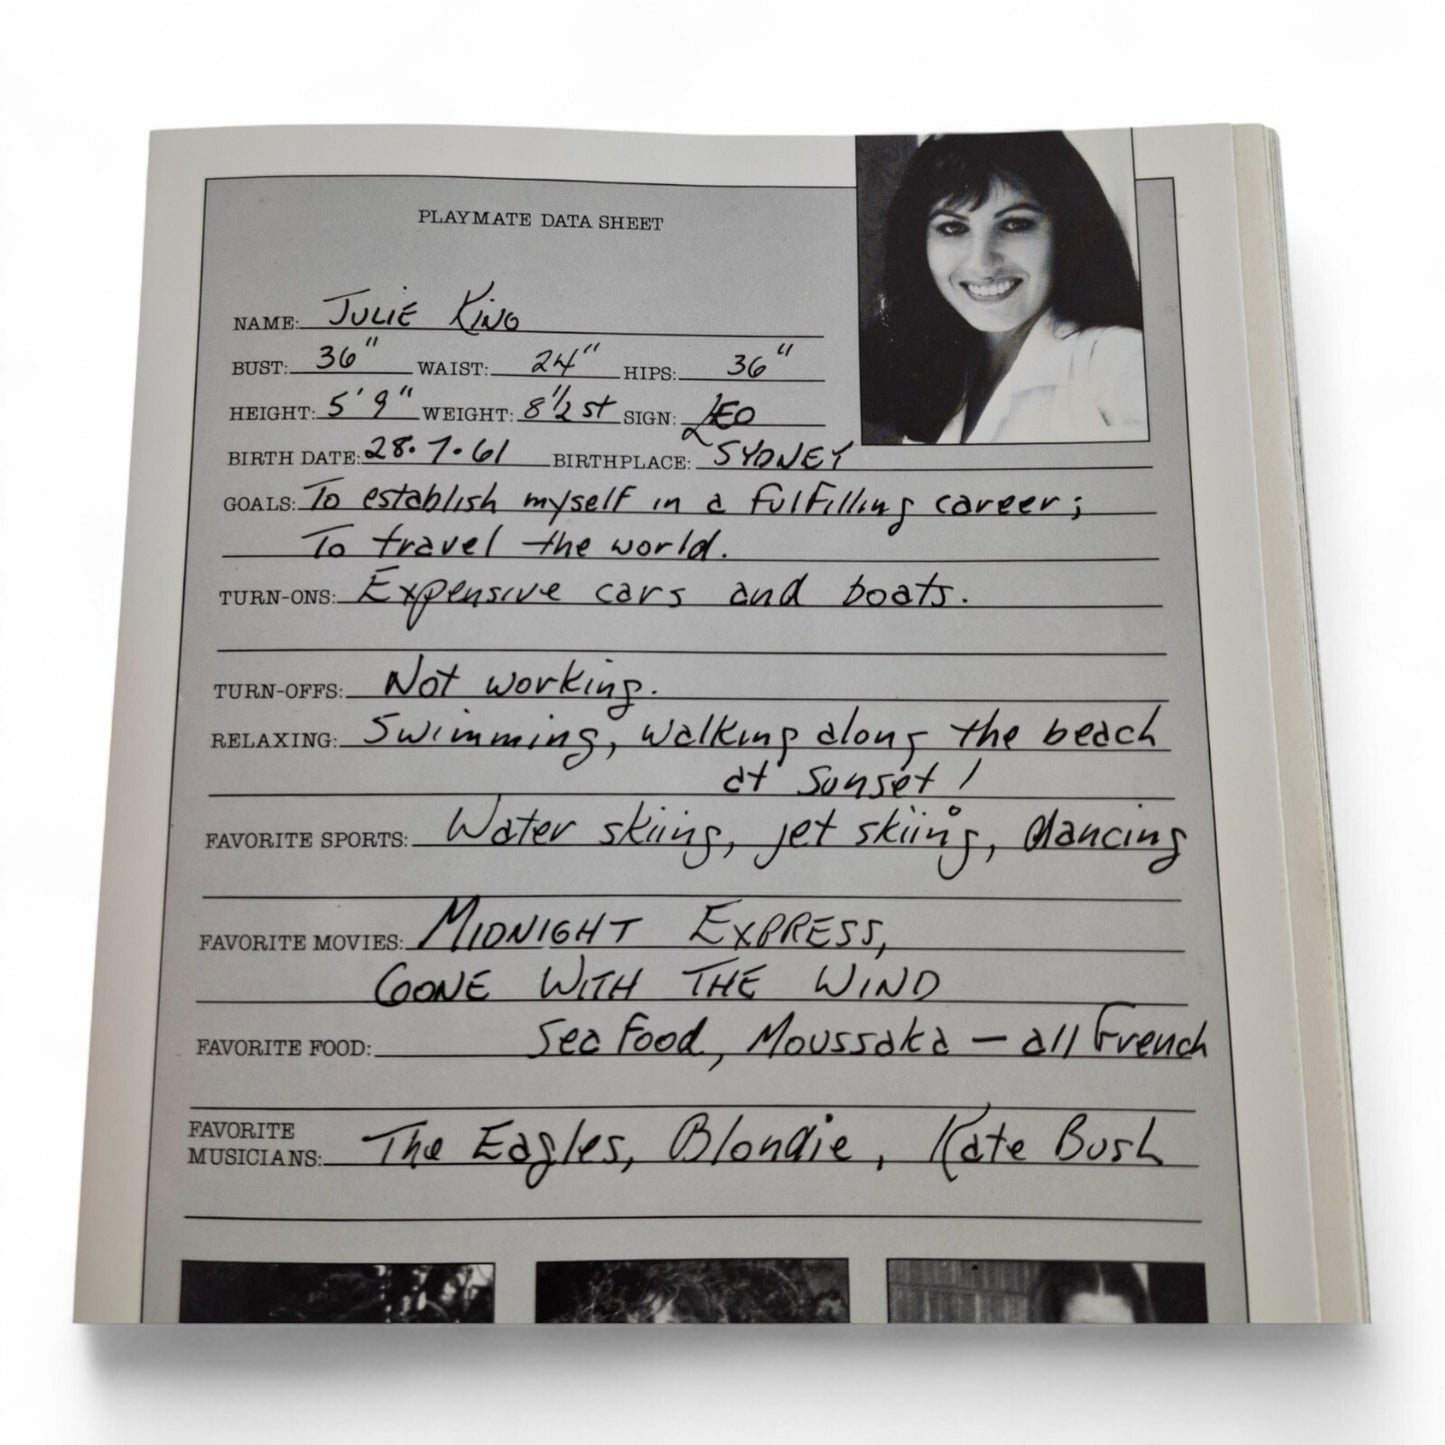 PLAYMATE DATA SHEET
NAME: JULIE KING
BUST: 36" WAIST: 24" HIPS: 36"
HEIGHT: 5'9" WEIGHT: 8½ st SIGN: LEO
BIRTH DATE: 28.7.61 BIRTHPLACE: SYDNEY
GOALS: To establish myself in a fulfilling career;
To travel the world.
TURN-ONS: Expensive cars and boats.
TURN-OFFS: Not working.
RELAXING: Swimming, walking along the beach
at sunset!
FAVORITE SPORTS: Water skiing, jet skiing, dancing
FAVORITE MOVIES: MIDNIGHT EXPRESS,
GONE WITH THE WIND
FAVORITE FOOD: Sea food, Moussaka – all French
FAVORITE
MUSICIANS: The Eagles, Blondie, Kate Bush